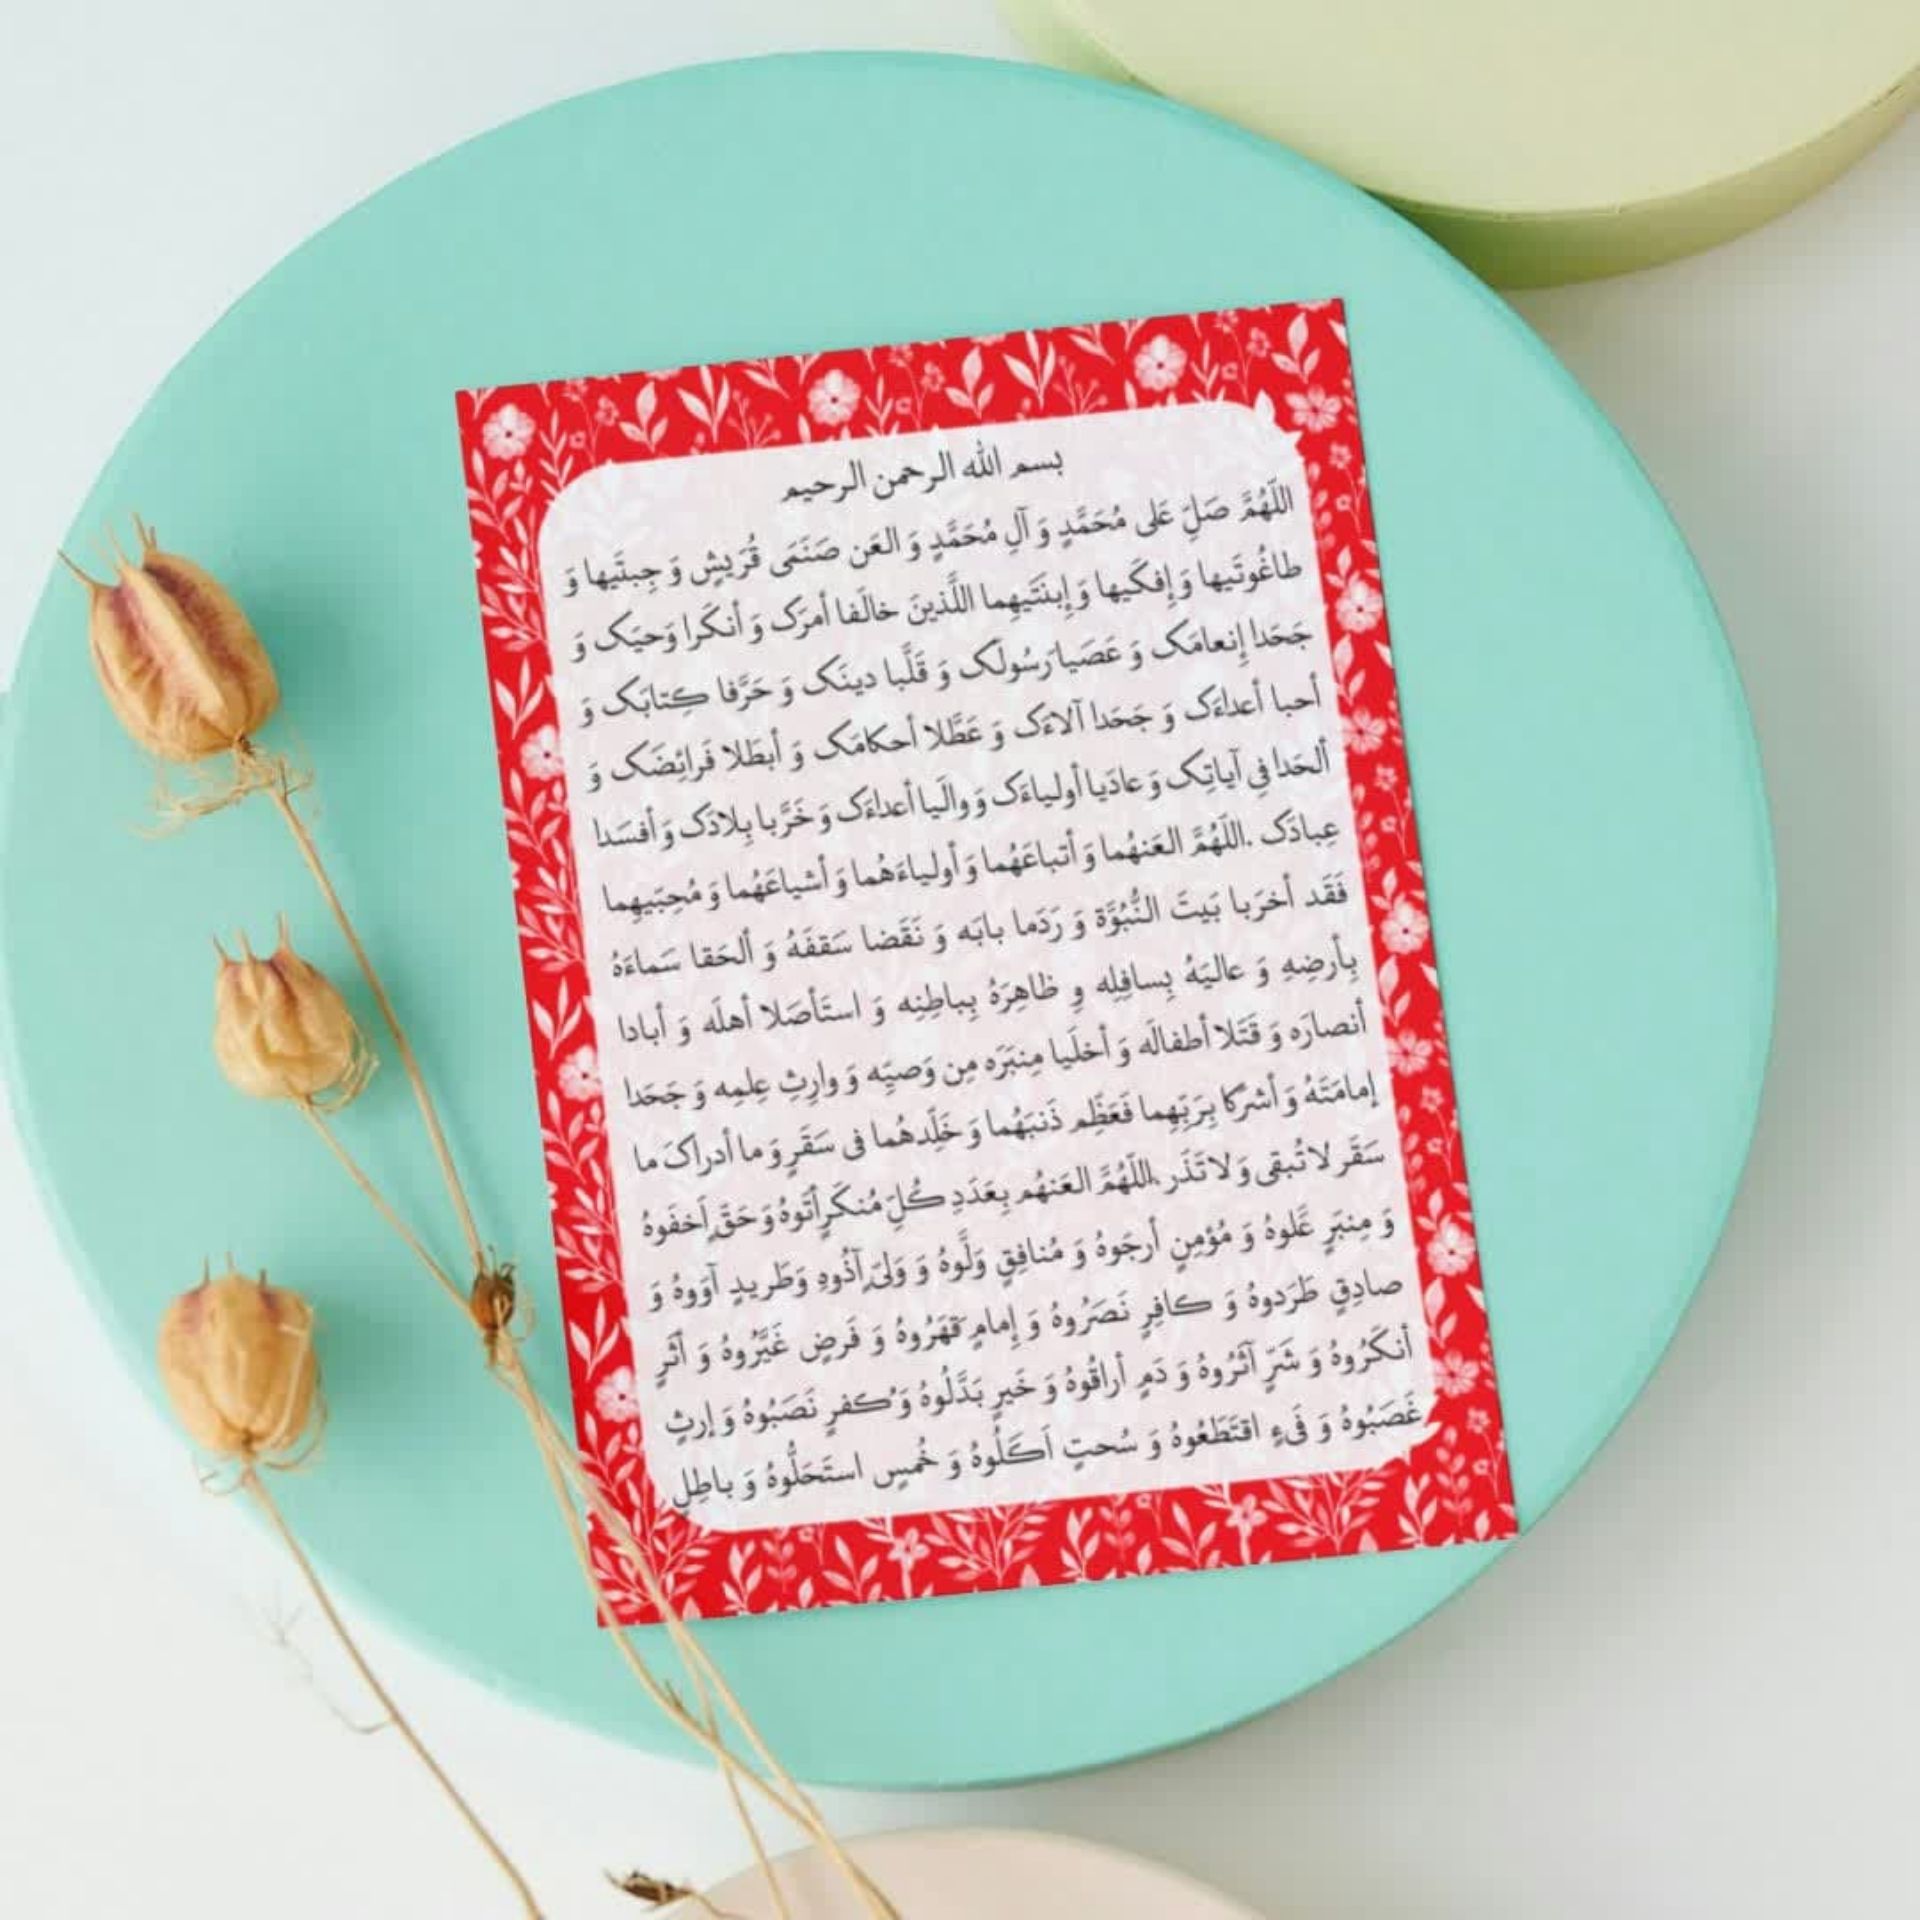 بسم الله الرحمن الرحيم
اللّهُمَّ صَلِّ عَلى مُحَمَّدٍ وَ آلِ مُحَمَّدٍ وَ العَن صَنَمَى قُرَيشٍ وَ جِبتَيها وَ
طاغُوتَيها وَ إفكَيها وَ إبنَتَيهِما اللَّذينَ خالَفا أمرَک وَ أنكَرا وَحيَک وَ
جَحَدا إنعامَک وَ عَصَيا رَسُولَک وَ قَلَّبا دينَک وَ حَرَّفا كِتابَک وَ
أحبا أعداءَک وَ جَحَدا آلاءَک وَ عَطَّلا أحكامَک وَ أبطَلا فَرائِضَک وَ
ألحَدا فِي آياتِک وَ عادَيا أولياءَک وَ والَيا أعداءَک وَ خَرَّبا بِلادَک وَ أفسَدا
عِبادَک .اللّهُمَّ العَنهُما وَ أتباعَهُما وَ أولياءَهُما وَ أشياعَهُما وَ مُحِبّيهِما
فَقَد أخرَبا بَيتَ النُّبُوَّة وَ رَدَما بابَه وَ نَقَضا سَقفَهُ وَ ألحَقا سَماءَهُ
بِأرضِهِ وَ عاليَهُ بِسافِلِه وِ ظاهِرَهُ بِباطِنِه وَ استَأصَلا أهلَه وَ أبادا
أنصارَه وَ قَتَلا أطفالَه وَ أخلَيا مِنبَرَه مِن وَصيِّه وَ وارِثِ عِلمِه وَ جَحَدا
إمامَتَهُ وَ أشرَكا بِرَبِّهِما فَعَظِّم ذَنبَهُما وَ خَلِّدهُما فى سَقَرٍ وَ ما أدراکَ ما
سَقَر لا تُبقى وَ لا تَذَر .اللّهُمَّ العَنهُم بِعَدَدِ كُلِّ مُنكَرٍ أتَوهُ وَ حَقٍّ أخفَوهُ
وَ مِنبَرٍ عَلَوهُ وَ مُؤمِنٍ أرجَوهُ وَ مُنافِقٍ وَلَّوهُ وَ وَلىٍّ آذُوهِ وَطَريدٍ آوَوهُ وَ
صادِقٍ طَرَدوهُ وَ كافِرٍ نَصَرُوهُ وَ إمامٍ قَهَرُوهُ وَ فَرضٍ غَيَّرُوهُ وَ أثَرٍ
أنكَرُوهُ وَ شَرٍّ آثَرُوهُ وَ دَمٍ أراقُوهُ وَ خَيرٍ بَدَّلُوهُ وَ كفرٍ نَصَبُوهُ وَ إرثٍ
غَصَبُوهُ وَ فَىءٍ اقتَطَعُوهُ وَ سُحتٍ اَكَلُوهُ وَ خُمسٍ استَحَلُّوهُ وَ باطِلٍ